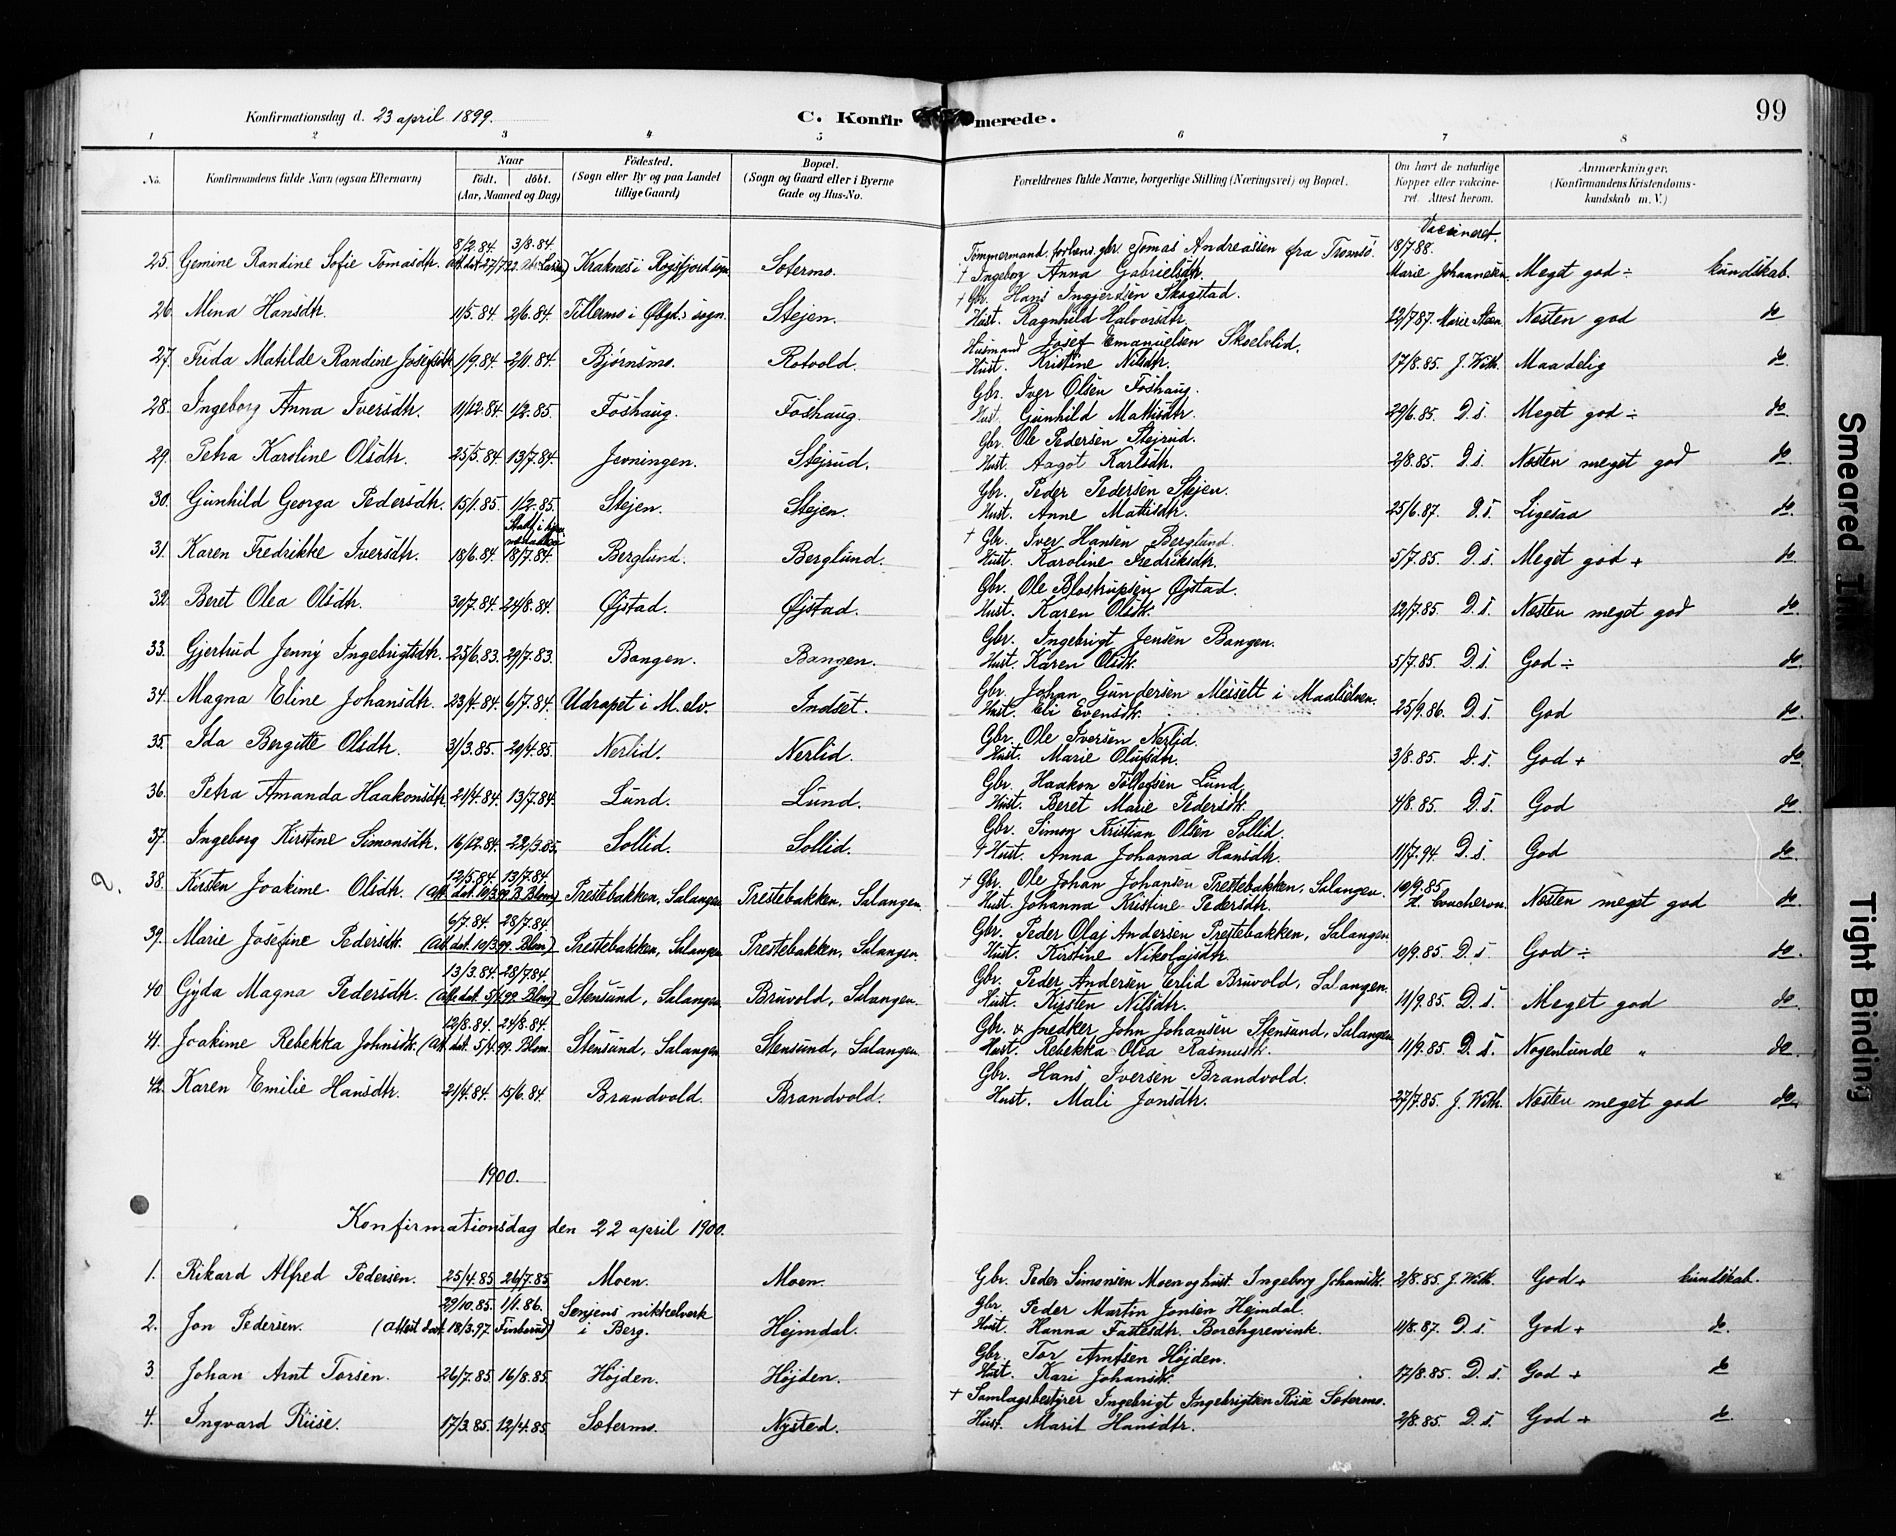 Konfirmationsdag d. 23 april 1899.
C. Konfirmerede.
99
1 2 3 4 5 6 7 8
No. Konfirmandens fulde Navn (ogsaa Efternavn) Naar født. døbt. (Aar, Maaned og Dag) Fødested. (Sogn eller By og paa Landet tillige Gaard) Bopæl. (Sogn og Gaard eller i Byerne Gade og Hus-No. Forældrenes fulde Navne, borgerlige Stilling (Næringsvei) og Bopæl. Om havt de naturlige Kopper eller vakcineret. Attest herom. Anmærkninger. (Konfirmandens Kristendomskundskab m. V.)
Vaccineret.
25. Gemine Randine Sofie Tomasdtr. 8/2.84. 3/8.84. Kraknes i sogn. Sætermo. Tømmermand, gbr. Tomas Andreassen fra Tromsø. + Ingeborg Anna Gabrielsdtr. 18/7 88. Marie Johannesen. Meget god ÷ kundskab.
26. Mina Hansdtr. 11/5.84. 2/6.84. Tillermo i sogn. Stejen. + Gbr. Hans Ingjerdsen Skogstad. Hust. Ragnhild Halvorsdtr. 12/7 87. Marie Næsten god do
27. Frida Matilde Randine Josefsdtr. 1/9.84. 2/11.84. Bjørnsmo. Rotvold. Husmand Josef Emanuelsen Skoelvlid. Hust. Kristine Nilsdtr. 17/8.85. J. With. Maadelig do.
28. Ingeborg Anna Iversdtr. 11/12.84. 1/2.85. Foshaug. Foshaug. Gbr. Iver Olsen Foshaug. Hust. Gunhild Mattisdtr. 29/6.85. D. s. Meget god ÷ do.
29. Petra Karoline Olsdtr. 25/5.84. 13/7.84. Jevningen. Stejrud. Gbr. Ole Pedersen Stejrud. Hust. Aagot Karlsdtr. 2/8.85. D. s. Næsten meget god do.
30. Gunhild Georga Pedersdtr. 15/1.85. 1/2.85. Stejen. Stejen. Gbr. Peder Pedersen Stejen. Hust. Anne Mattisdtr. 25/6.87. D. s. Ligesaa do
31. Karen Fredrikke Iversdtr. 18/6.84. 18/7.84. Berglund. Berglund. + Gbr. Iver Hansen Berglund. Hust. Karoline Fredriksdtr. 5/7.85. D. s. Meget god + do
32. Beret Olea Olsdtr. 30/7.84. 24/8.84. Øjstad. Øjstad. Gbr. Ole Blostrupsen Øjstad. Hust. Karen Olsdtr. 12/7.85. D. s. Næsten meget god do
33. Gjertrud Jenny Ingebrigtsdtr. 25/6.83. 29/7.83. Bangen. Bangen. Gbr. Ingebrigt Jensen Bangen. Hust. Karen Olsdtr. 5/7.85. D. s. God ÷ do.
34. Magna Eline Johansdtr. 23/4.84. 6/7.84. Udrapet i M.elv. Indset. Gbr. Johan Gundersen Messelt i Maalselven. Hust. Eli Evensdtr. 25/9.86. D. s. God do.
35. Ida Bergitte Olsdtr. 31/3.85. 29/4.85. Nerlid. Nerlid. Gbr. Ole Iversen Nerlid. Hust. Marie Olufsdtr. 3/8.85. D. s. God + do
36. Petra Amanda Haakonsdtr. 21/4.84. 13/7.84. Lund. Lund. Gbr. Haakon Tollefsen Lund. Hust. Beret Marie Pedersdtr. 4/8.85. D. s. God do.
37. Ingeborg Kirstine Simonsdtr. 16/12.84. 22/3.85. Sollid. Sollid. Gbr. Simon Kristian Olsen Sollid. + Hust. Anna Johanna Hansdtr. 11/7.94. D. s. God do
2.
38. Kirsten Joakime Olsdtr. 12/5.84. 13/7.84. (Att. dat. 10/3.99. B. Blom) Prestebakken, Salangen Prestebakken, Salangen. + Gbr. Ole Johan Johansen Prestebakken, Salangen. Hust. Johanna Kristine Pedersdtr. 10/9.85. Coucheron. Næsten meget god do
39. Marie Josefine Pedersdtr. 6/7.84. 28/7.84. (Att. dat. 10/3.99. Blom) Prestebakken, Salangen Prestebakken, Salangen. Gbr. Peder Olaj Andersen Prestebakken, Salangen. Hust. Kirstine Nikolajsdtr. 10/9.85. D. s. God ÷ do.
40 Gyda Magna Pedersdtr. 13/3.84. 28/7.84. (Att. dat. 5/4.99. Blom) Stensund, Salangen Bruvold, Salangen. Gbr. Peder Andersen Erlid Bruvold, Salangen. Hust. Kirsten Nilsdtr. 11/9.85. D. s. Meget god do
41. Joakime Rebekka Johnsdtr. 12/8.84. 24/8.84. (Att. dat. 5/4.99. Blom. Stensund, Salangen Stensund, Salangen. Gbr. & snedker John Johansen Stensund, Salangen. Hust. Rebekka Olea Rasmusdtr. 11/9.85. D. s. Nogenlunde " do
42. Karen Emilie Hansdtr. 21/4.84. 15/6.84. Brandvold. Brandvold. Gbr. Hans Iversen Brandvold. Hust. Mali Jonsdtr. 27/7.85. J. With. Næsten meget god do
1900.
Konfirmationsdag den 22 april 1900.
1. Rikard Alfred Pedersen. 25/4.85. 26/7.85. Moen. Moen. Gbr. Peder Simonsen Moen og hust. Ingeborg Johansdtr. 2/8.85. J. With. God + kundskab.
2. Jon Pedersen. 29/10.85. 1/1.86. (Attest dat. 18/3.97. ) Senjens nikkelverk i Berg. Hejmdal. Gbr. Peder Martin Jonsen Hejmdal. Hust. Hanna Fastesdtr. Borchgrewink. 11/8.87. D. s. God + do.
3. Johan Arnt Torsen. 26/7.85. 16/8.85. Højden. Højden. Gbr. Tor Arntsen Højden. Hust. Kari Johansdtr. 17/8.85. D. s. God + do
4. Ingvard Riise. 17/3.85. 12/4.85. Sætermo. Nysted. + Samlagsbestyrer Ingebrigt Ingebrigtsen Riise Sætermo. Hust. Marit Hansdtr. 2/8.85. D. s. God + do
Smeared Ink
Tight Binding